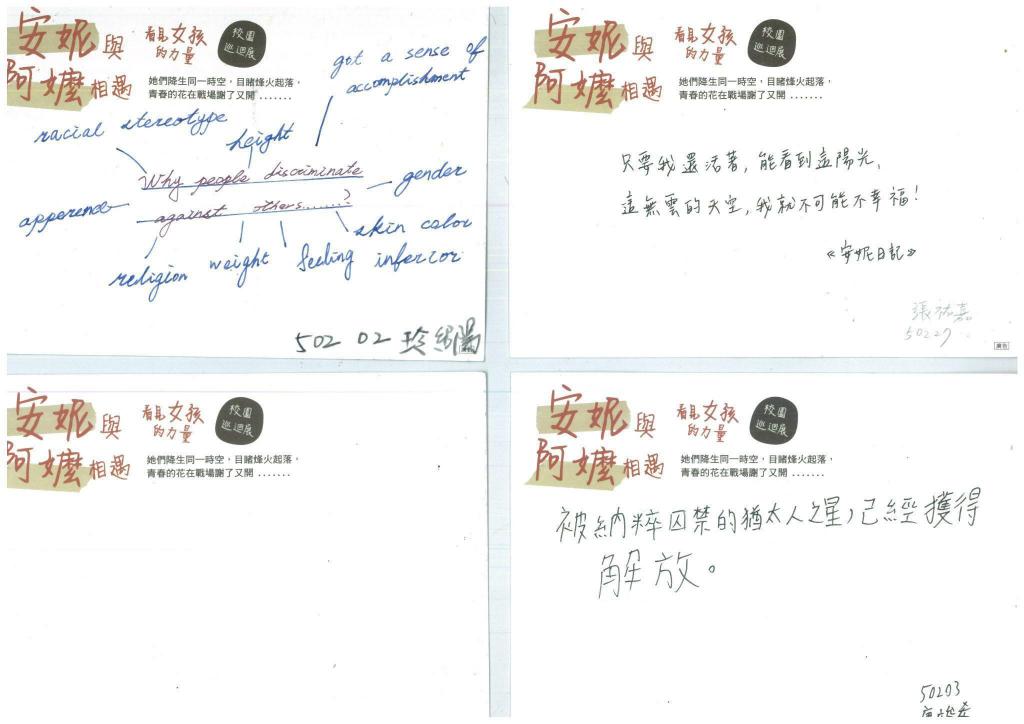 安妮與
阿嬤相遇
看見女孩
的力量
校園
巡迴展
她們降生同一時空，目睹烽火起落，
青春的花在戰場謝了又開 .......
got a sense of
accomplishment
racial stereotype
height
Why people discriminate
against others......?
gender
apperence
skin color
religion
weight
feeling inferior
502 02
安妮與
阿嬤相遇
看見女孩
的力量
校園
巡迴展
她們降生同一時空，目睹烽火起落，
青春的花在戰場謝了又開 .......
只要我還活著，能看到這陽光、
這無雲的天空，我就不可能不幸福！
《安妮日記》
張祐嘉
50227
廣告
安妮與
阿嬤相遇
看見女孩
的力量
校園
巡迴展
她們降生同一時空，目睹烽火起落，
青春的花在戰場謝了又開 .......
安妮與
阿嬤相遇
看見女孩
的力量
校園
巡迴展
她們降生同一時空，目睹烽火起落，
青春的花在戰場謝了又開 .......
被納粹囚禁的猶太人之星，已經獲得
解放。
50203